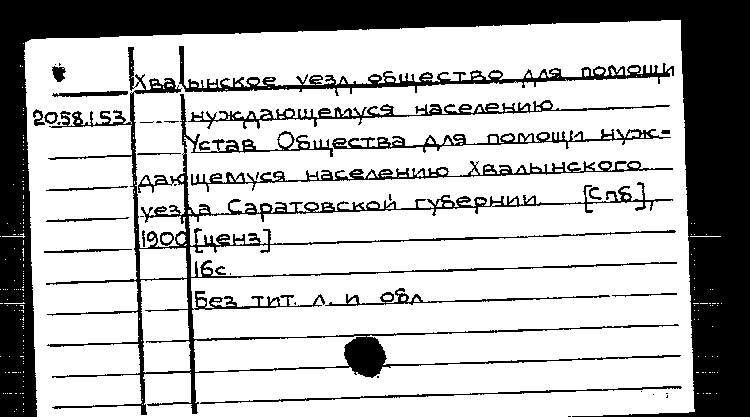 Хвалынское уезд. общество для помощи
20.58.1.53 нуждающемуся населению.
Устав Общества для помощи нуж=
дающемуся населению Хвалынского
уезда Саратовской губернии [Спб.],
1900 [ценз]
16с.
Без тит. л. и обл